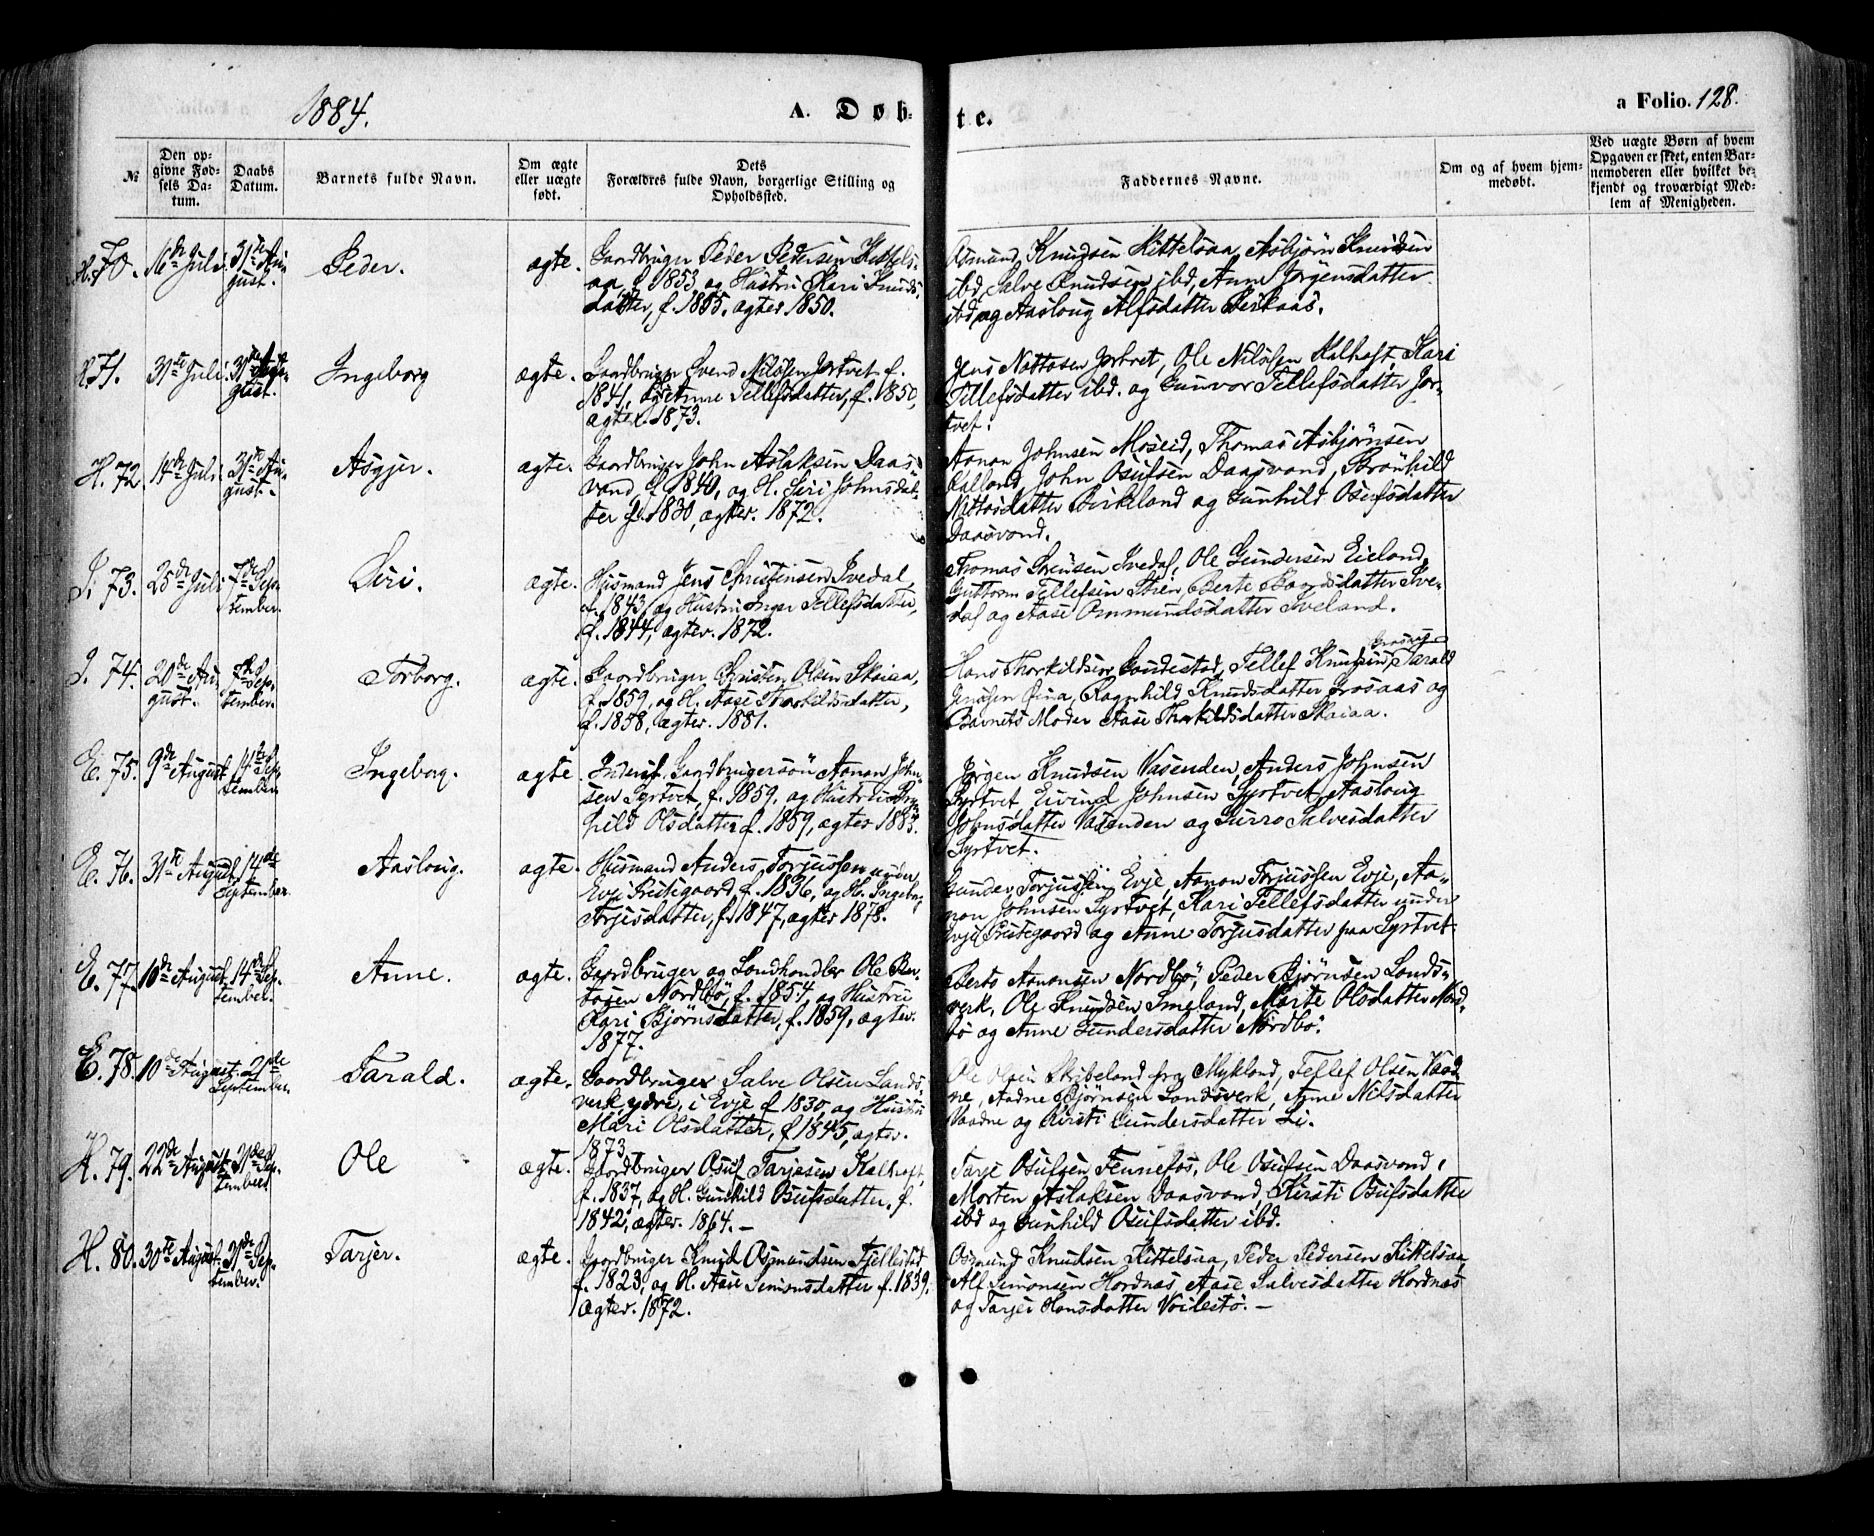 1884.
A. Døb-
te.
a Folio. 128.
№
Den op-
givne Fød-
sels Da-
tum.
Daabs
Datum.
Barnets fulde Navn.
Om ægte
eller uægte
født.
Dets
Forældres fulde Navn, borgerlige Stilling og
Opholdssted.
Faddernes Navne.
Om og af hvem hjem-
medøbt.
Ved uægte Børn af hvem
Opgaven er skeet, enten Bar-
nemoderen eller hvilket be-
kjendt og troværdigt Med-
lem af Menigheden.
H. 70. 16de Juli. 31te Au-
gust.
Peder.
ægte.
Gaardbruger Peder Pedersen Kittels-
aa, f. 1853 og Hustru Kari Knuds-
datter, f. 1855. ægtev. 1850.
Osmund Knudsen Kittelsaa, Asbjørn Knudsen
ibd, Salve Knudsen ibd, Anne Jørgensdatter
ibd og Aasloug Alfsdatter Birkaas.
H. 71. 31te Juli. 31te Au-
gust.
Ingeborg
ægte.
Gaardbruger Svend Nilssen Jortvet f.
1841, og Anne Tellefsdatter, f. 1850,
ægtev. 1873.
Jens Nettosen Jortvet, Ole Nilssen Kalhoft, Kari
Tellefsdatter ibd. og Gunvor Tellefsdatter Jor-
tvet.
H. 72. 14de Juli. 31te Au-
gust.
Asgjer.
ægte.
Gaardbruger John Aslaksen Daas-
vand f. 1840, og H. Siri Johnsdat-
ter f. 1830, ægtev. 1872.
Aanon Johnsen Moseid, Thomas Asbjørnsen
Kalland, John Osufsen Daasvand, Brønhild
Nittersdatter Birkeland og Gunhild Osufsdatter
Daasvand.
I. 73. 25de Juli 7de Sep-
tember.
Siri.
ægte.
Husmand Jens Christensen Ivedal,
f. 1843, og Hustru Inger Tellefsdatter,
f. 1844, ægtev. 1872.
Thomas Sørensen Ivedal, Ole Gundersen Eieland,
Guttorm Tellefsen Stien, Berte Baardsdatter Ive-
dal og Aase Ommundsdatter Iveland.
I. 74. 20de Au-
gust. 7de Sep-
tember.
Torborg.
ægte.
Gaardbruger Christen Olsen Skaiaa,
f. 1859, og H. Aase Thorkildsdatter,
f. 1858, ægtev. 1881.
Hans Thorkildsen Gaudestad, Tellef Knudsen Frosaas, Tarald
Jensen Øina, Ragnhild Knudsdatter Frosaas og
Barnets Moder Aase Thorkildsdatter Skaiaa.
E. 75. 9de August 14de Sep-
tember.
Ingeborg.
ægte.
Inderst. Gaardbrugersøn Aanon John-
sen Syrtvet, f. 1859, og Hustru Bryn-
hild Olsdatter f. 1859, ægtev 1883.
Jørgen Knudsen Vasenden, Anders Johnsen
Syrtvet, Eivind Johnsen Syrtvet, Aasloug
Johnsdatter Vasenden og Gurro Salvesdatter
Syrtvet.
E. 76. 31te August 14de
September.
Aasloug.
ægte.
Husmand Anders Torjussen under
Evje Prestegaard, f. 1836, og H. Ingeborg
Torjusdatter, f. 1847, ægtev 1878.
Gunder Torjussen Evje, Aanon Torjussen Evje, Aa-
non Johnsen Syrtvet, Kari Tellefsdatter under
Evje Prestegaard og Anne Torjusdatter paa Syrtvet.
E. 77. 10de August 14de Sep-
tember.
Anne.
ægte.
Gaardbruger og Landhandler Ole Ber-
tosen Nordbø, f. 1854, og Hustru
Kari Bjørnsdatter, f. 1859, ægtev.
1877.
Berto Aanonsen Nordbø, Peder Bjørnsen Lands-
verk, Ole Knudsen Imeland, Marte Olsdatter Nord-
bø og Anne Gundersdatter Nordbø.
E. 78. 10de August 21de
September.
Tarald.
ægte.
Gaardbruger Salve Olsen Lands-
verk ydre, i Evje f. 1830, og Hustru
Mari Olsdatter, f. 1845, ægtev.
1873.
Ole Olsen Skibeland fra Mykland, Tellef Olsen Vaad-
ne, Aadne Bjørnsen Landsverk, Anne Nilsdatter
Vaadne og Kirsti Gundersdatter Li.
H. 79. 22de August 21de Sep-
tember.
Ole
ægte.
Gaardbruger Osuf Tarjesen Kalhoft,
f. 1837, og H. Gunhild Osufsdatter, f.
1842, ægtev. 1864. —
Tarje Osufsen Fennefos, Ole Osufsen Daasvand,
Morten Aslaksen Daasvand, Kirsti Osufsdatter
ibd og Gunhild Osufsdatter ibd.
H. 80. 30te August. 21de Sep-
tember.
Tarjer.
ægte.
Gaardbruger Knud Osmundsen Fjellestad
f. 1823, og H. Aase Simonsdatter f. 1839.
ægtev. 1872.
Osmund Knudsen Kittelsaa, Peder Pedersen Kittelsaa,
Alf Simonsen Hordnæs, Aase Salvesdatter Hordnæs
og Tarjer Hansdatter Voilestø. —